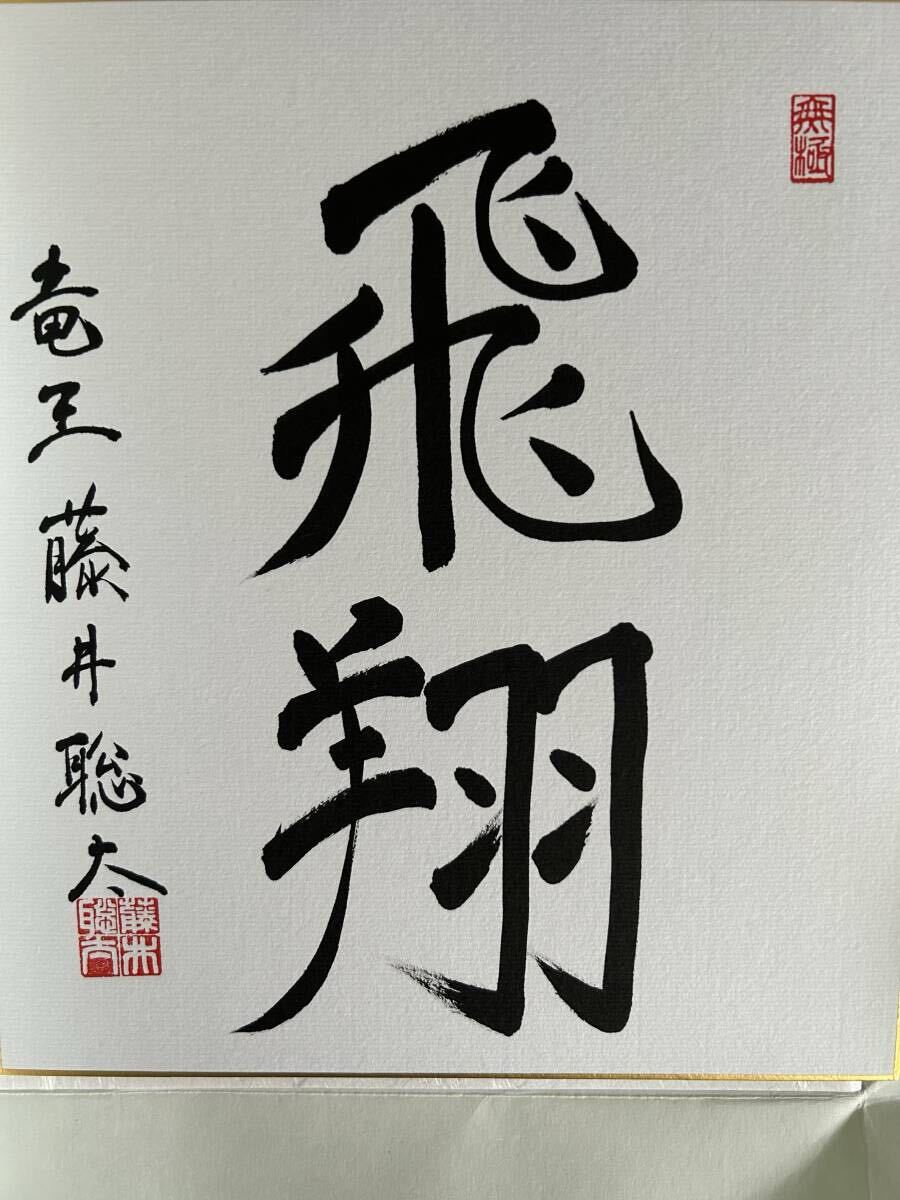 無極
飛翔
竜王 藤井聡太
藤井
聡太